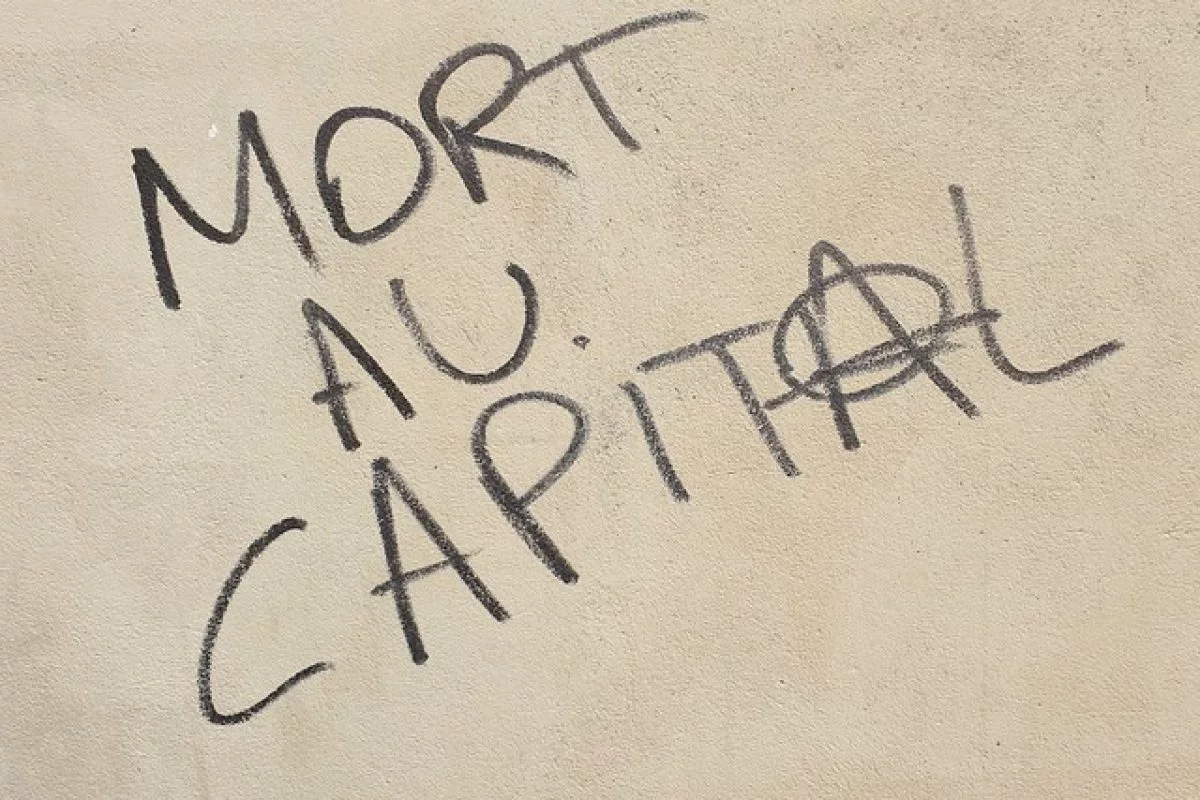 MORT
AU
CAPITAL